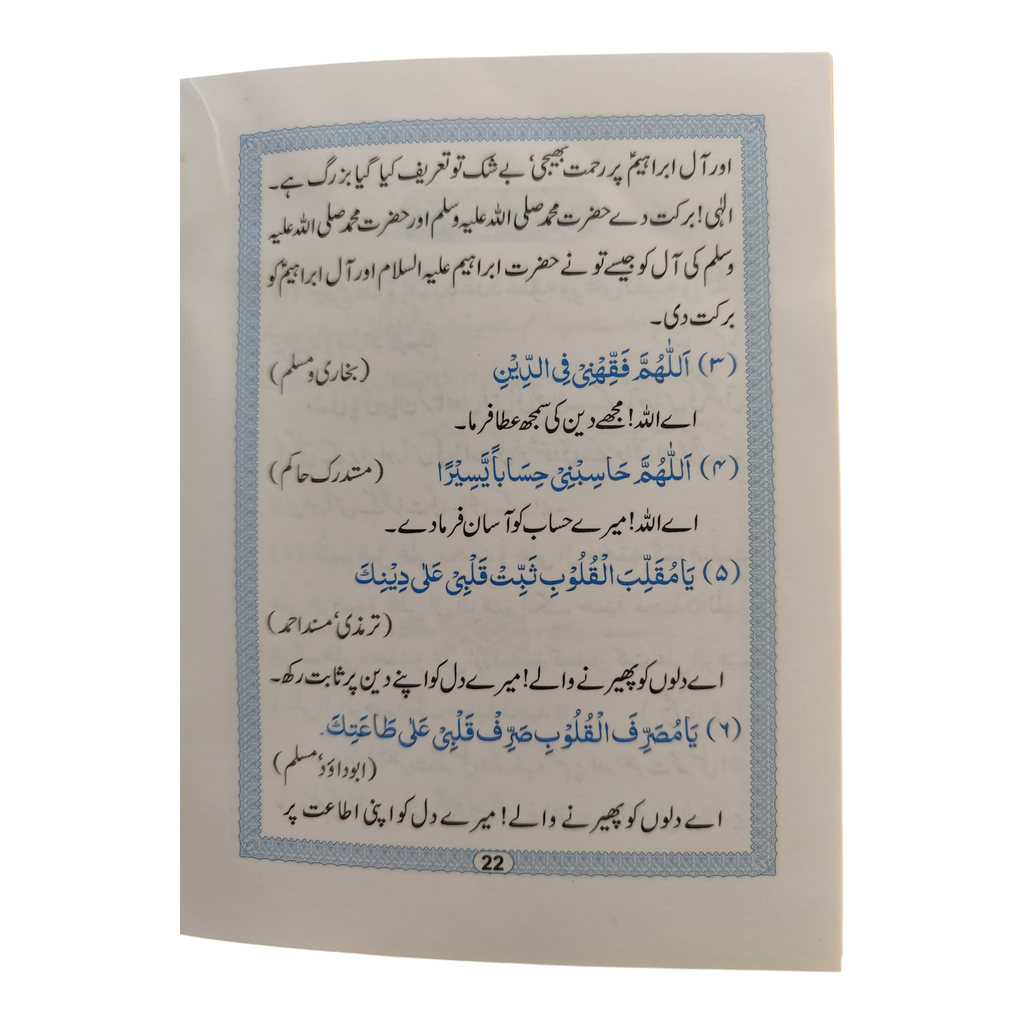 اور آل ابراہیمؑ پر رحمت بھیجی‘ بے شک تو تعریف کیا گیا بزرگ ہے۔
الٰہی! برکت دے حضرت محمد صلی اللہ علیہ وسلم اور حضرت محمد صلی اللہ علیہ
وسلم کی آل کو جیسے تو نے حضرت ابراہیم علیہ السلام اور آل ابراہیمؑ کو
برکت دی۔
(۳) اَللّٰهُمَّ فَقِّهْنِيْ فِي الدِّيْنِ (بخاری و مسلم)
اے اللہ! مجھے دین کی سمجھ عطا فرما۔
(۴) اَللّٰهُمَّ حَاسِبْنِيْ حِسَاباً يَّسِيْرًا (مستدرک حاکم)
اے اللہ! میرے حساب کو آسان فرما دے۔
(۵) يَا مُقَلِّبَ الْقُلُوْبِ ثَبِّتْ قَلْبِيْ عَلٰى دِيْنِكَ
(ترمذی‘ مسند احمد)
اے دلوں کو پھیرنے والے! میرے دل کو اپنے دین پر ثابت رکھ۔
(۶) يَا مُصَرِّفَ الْقُلُوْبِ صَرِّفْ قَلْبِيْ عَلٰى طَاعَتِكَ۔
(ابوداؤد‘ مسلم)
اے دلوں کو پھیرنے والے! میرے دل کو اپنی اطاعت پر
22